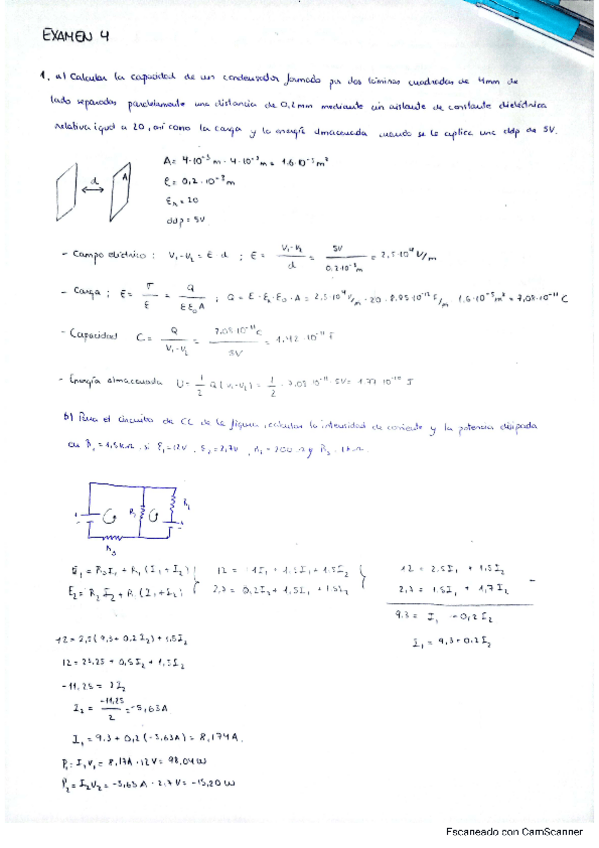 EXAMEN 4
1. a) Calcular la capacidad de un condensador formado por dos láminas cuadradas de 4mm de
lado separadas paralelamente una distancia de 0,2mm mediante un aislante de constante dieléctrica
relativa igual a 20, así como la carga y la energía almacenada cuando se le aplica una ddp de 5V.
d A
A = 4·10⁻³m · 4·10⁻³m = 1.6·10⁻⁵m²
= 0,2·10⁻³m
= 20
ddp = 5V
- Campo eléctrico: V₁-V₂ = E d ; E = V₁-V₂ / d = 5V / 0,2·10⁻³m = 2,5·10⁴ V/m
- Carga: E = σ/ε = Q / εε₀A ; Q = E·εᵣ·ε₀·A = 2,5·10⁴ V/m · 20 · 8.85·10⁻¹² F/m · 1.6·10⁻⁵m² = 7,08·10⁻¹¹ C
- Capacidad C = Q / V₁-V₂ = 7,08·10⁻¹¹C / 5V = 1,42·10⁻¹¹ F
- Energía almacenada U = 1/2 Q(V₁-V₂) = 1/2 · 7,08·10⁻¹¹ · 5V = 1.77·10⁻¹⁰ J
b) Para el circuito de CC de la figura, calcular la intensidad de corriente y la potencia disipada
R₁ = 1,5kΩ, si ε₁=12V, ε₂=2,7V, y
R₁ R₂
R₃
ε₁ = R₃I₁ + R₁(I₁+I₂) 12 = 1I₁ + 1.5I₁ + 1.5I₂ 12 = 2.5I₁ + 1,5I₂
ε₂ = R₂I₂ + R₁(I₁+I₂) 2,7 = 0,2I₂ + 1,5I₁ + 1.5I₂ 2,7 = 1.5I₁ + 1,7I₂ -
9.3 = I₁ - 0,2I₂
I₁ = 9,3 + 0.2I₂
12 = 2,5(9,3 + 0.2I₂) + 1,5I₂
12 = 23,25 + 0,5I₂ + 1,5I₂
-11,25 = 2I₂
I₂ = -11,25 / 2 = -5,63A
I₁ = 9.3 + 0,2(-5,63A) = 8,174A.
P₁ = I₁V₁ = 8,17A · 12V = 98,04W
P₂ = I₂V₂ = -5,63A · 2,7V = -15,20W
Escaneado con CamScanner